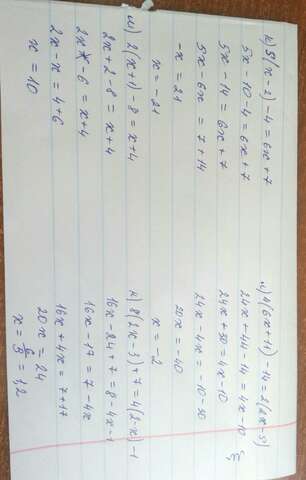 5(x-2)-4=6x+7
5x-10-4=6x+7
5x-14=6x+7
5x-6x=7+14
-x=21
x=-21
2(x+1)-8=x+4
2x+2-8=x+4
2x-6=x+4
2x-x=4+6
x=10
4(6x+11)-14=2(2x-5)
24x+44-14=4x-10
24x+30=4x-10
24x-4x=-10-30
20x=-40
x=-2
8(2x-3)+7=4(2-x)-1
16x-24+7=8-4x-1
16x-17=7-4x
16x+4x=7+17
20x=24
x=6/5=1,2